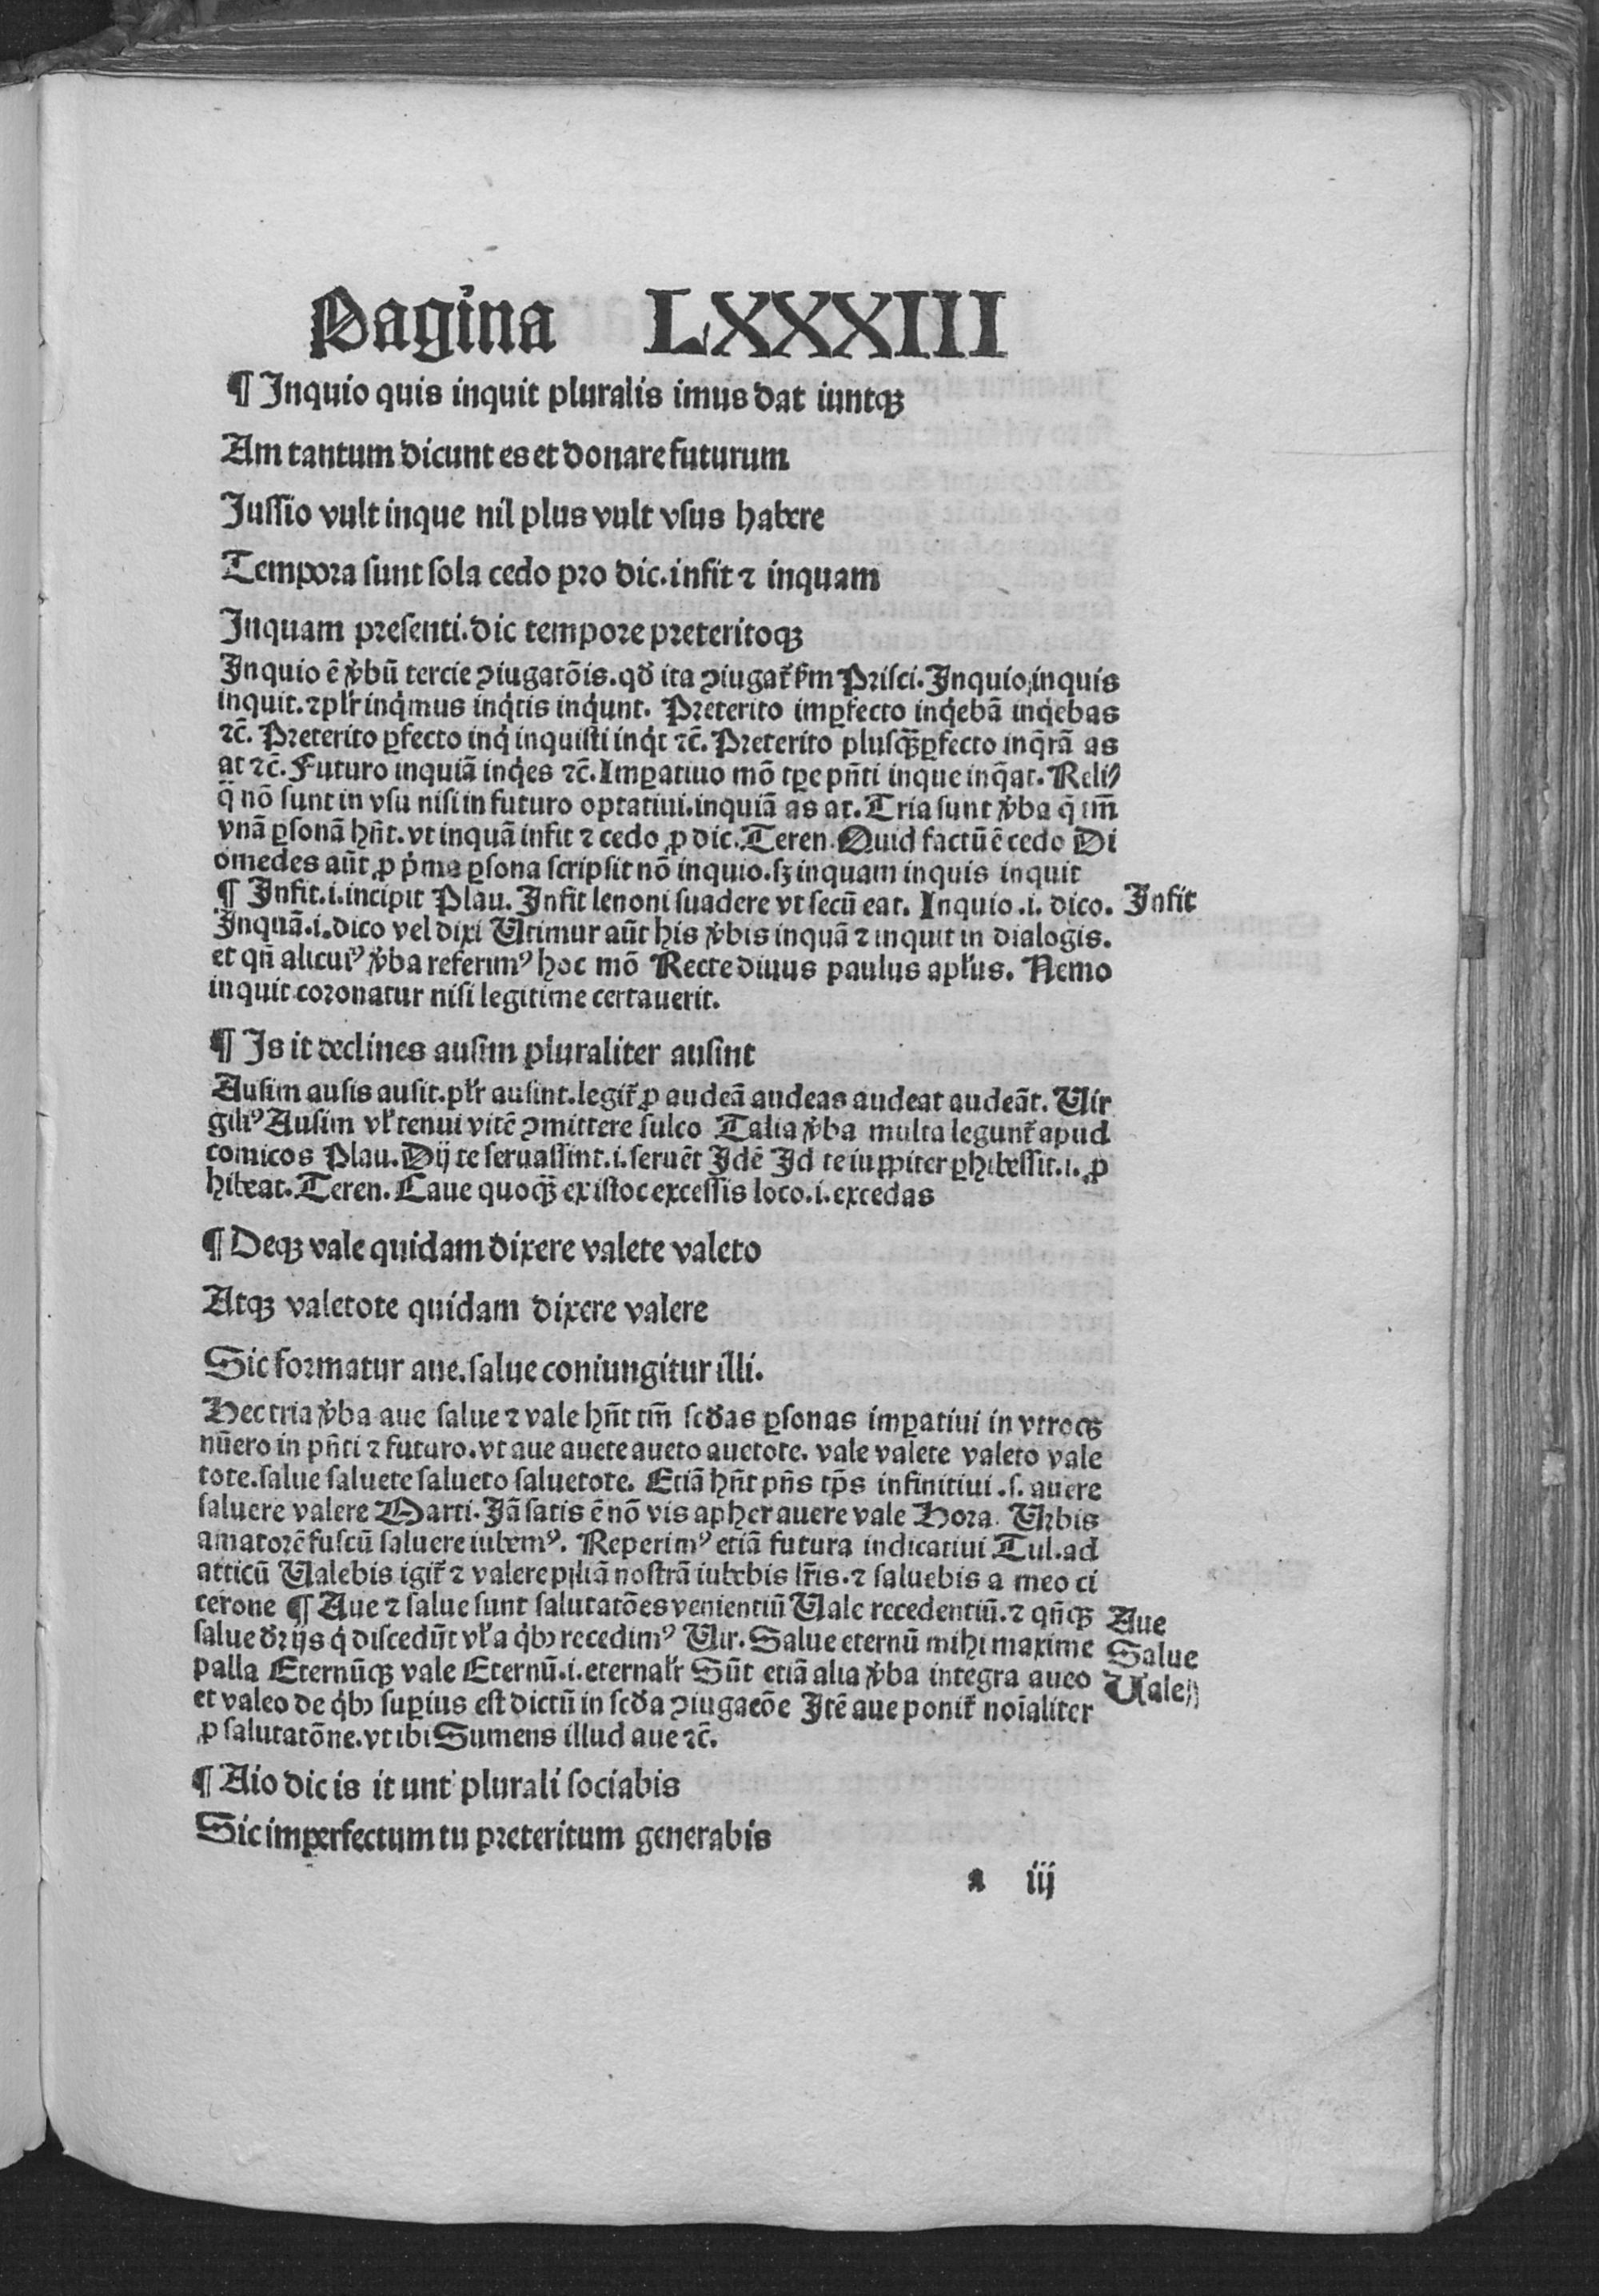 Pagina LXXXIII
¶ Inquio quis inquit pluralis imus dat iuntqꝫ
Am tantum dicunt es et donare futurum
Iussio vult inque nil plus vult vsus habere
Tempora sunt sola cedo pro dic. infit ⁊ inquam
Inquam presenti. dic tempore preteritoqꝫ
Inquio ē v̓bū tercie ↄiugatōis. qd̓ ita ↄiugat᷑ ẜm Prisci. Inquio, inquis
inquit. ⁊ pl̓r inq̇mus inq̇tis inq̇unt. Preterito imꝑfecto inq̇ebā inq̇ebas
⁊c̄. Preterito ꝑfecto inq̇ inquisti inq̇t ⁊c̄. Preterito plusqꝫꝑfecto inq̄rā as
at ⁊c̄. Futuro inquiā inq̇es ⁊c̄. Imꝑatiuo mō tꝑe pn̄ti inque inq̄at. Reli⸗
q̄ nō sunt in vsu nisi in futuro optatiui. inquiā as at. Tria sunt v̓ba q̄ tm̄
vnā ꝑsonā hn̄t. vt inquā infit ⁊ cedo ꝓ dic. Teren. Quid factū ē cedo Di
omedes aūt ꝓ p̓ma ꝑsona scripsit nō inquio. sꝫ inquam inquis inquit
¶ Infit. i. incipit Plau. Infit lenoni suadere vt secū eat. Inquio .i. dico. Infit
Inquā. i. dico vel dixi Utimur aūt his v̓bis inquā ⁊ inquit in dialogis.
et qn̄ alicuiꝰ v̓ba referimꝰ hoc mō Recte diuus paulus apl̓us. Nemo
inquit coronatur nisi legitime certauerit.
¶ Is it declines ausim pluraliter ausint
Ausim ausis ausit. pl̓r ausint. legit᷑ ꝓ audeā audeas audeat audeāt. Uir
giliꝰ Ausim vl̓ tenui vitē ↄmittere sulco Talia v̓ba multa legunt᷑ apud
comicos Plau. Dij te seruassint. i. seruēt Idē Id te iuppiter ꝓhibessit. i. ꝓ
hibeat. Teren. Caue quoqꝫ ex istoc excessis loco. i. excedas
¶ Deqꝫ vale quidam dixere valete valeto
Atqꝫ valetote quidam dixere valere
Sic formatur aue. salue coniungitur illi.
Hec tria v̓ba aue salue ⁊ vale hn̄t tm̄ scd̓as ꝑsonas imꝑatiui in vtroqꝫ
nūero in pn̄ti ⁊ futuro. vt aue auete aueto auetote. vale valete valeto vale
tote. salue saluete salueto saluetote. Etiā hn̄t pn̄s tp̄s infinitiui .s. auere
saluere valere Marti. Iā satis ē nō vis apher auere vale Hora. Urbis
amatorē fuscū saluere iubemꝰ. Reperimꝰ etiā futura indicatiui Tul. ad
atticū Ualebis igit᷑ ⁊ valere piliā nostrā iubebis lr̄is. ⁊ saluebis a meo ci
cerone ¶ Aue ⁊ salue sunt salutatōes venientiū Uale recedentiū. ⁊ qn̄qꝫ Aue
salue dr̄ ijs q̇ discedūt vl̓ a q̇bꝫ recedimꝰ Uir. Salue eternū mihi maxime Salue
palla Eternūqꝫ vale Eternū. i. eternal̓r Sūt etiā alia v̓ba integra aueo Uale
et valeo de q̇bꝫ suꝑius est dictū in scd̓a ↄiugacōe Itē aue ponit᷑ noīaliter
ꝓ salutatōne. vt ibi Sumens illud aue ⁊c̄.
¶ Aio dic is it unt plurali sociabis
Sic imperfectum tu preteritum generabis
a iij